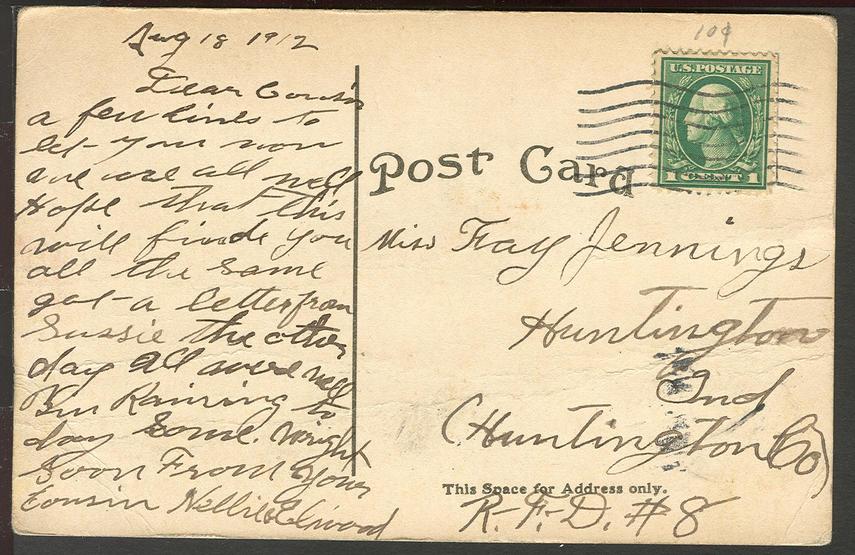 Aug 18 1912
Dear Cousin
a few lines to
let you now
we are all well
Hope that this
will finde you
all the same
got a letter from
Sussie the other
day all were well
Bin Raining to
day some. Wright
soon From your
cousin Nellie Elwood
10¢
U.S. POSTAGE
1 CENT 1
Post Card
Miss Fay Jennings
Huntington
Ind
(Huntington Co)
This Space for Address only.
R.F.D. #8